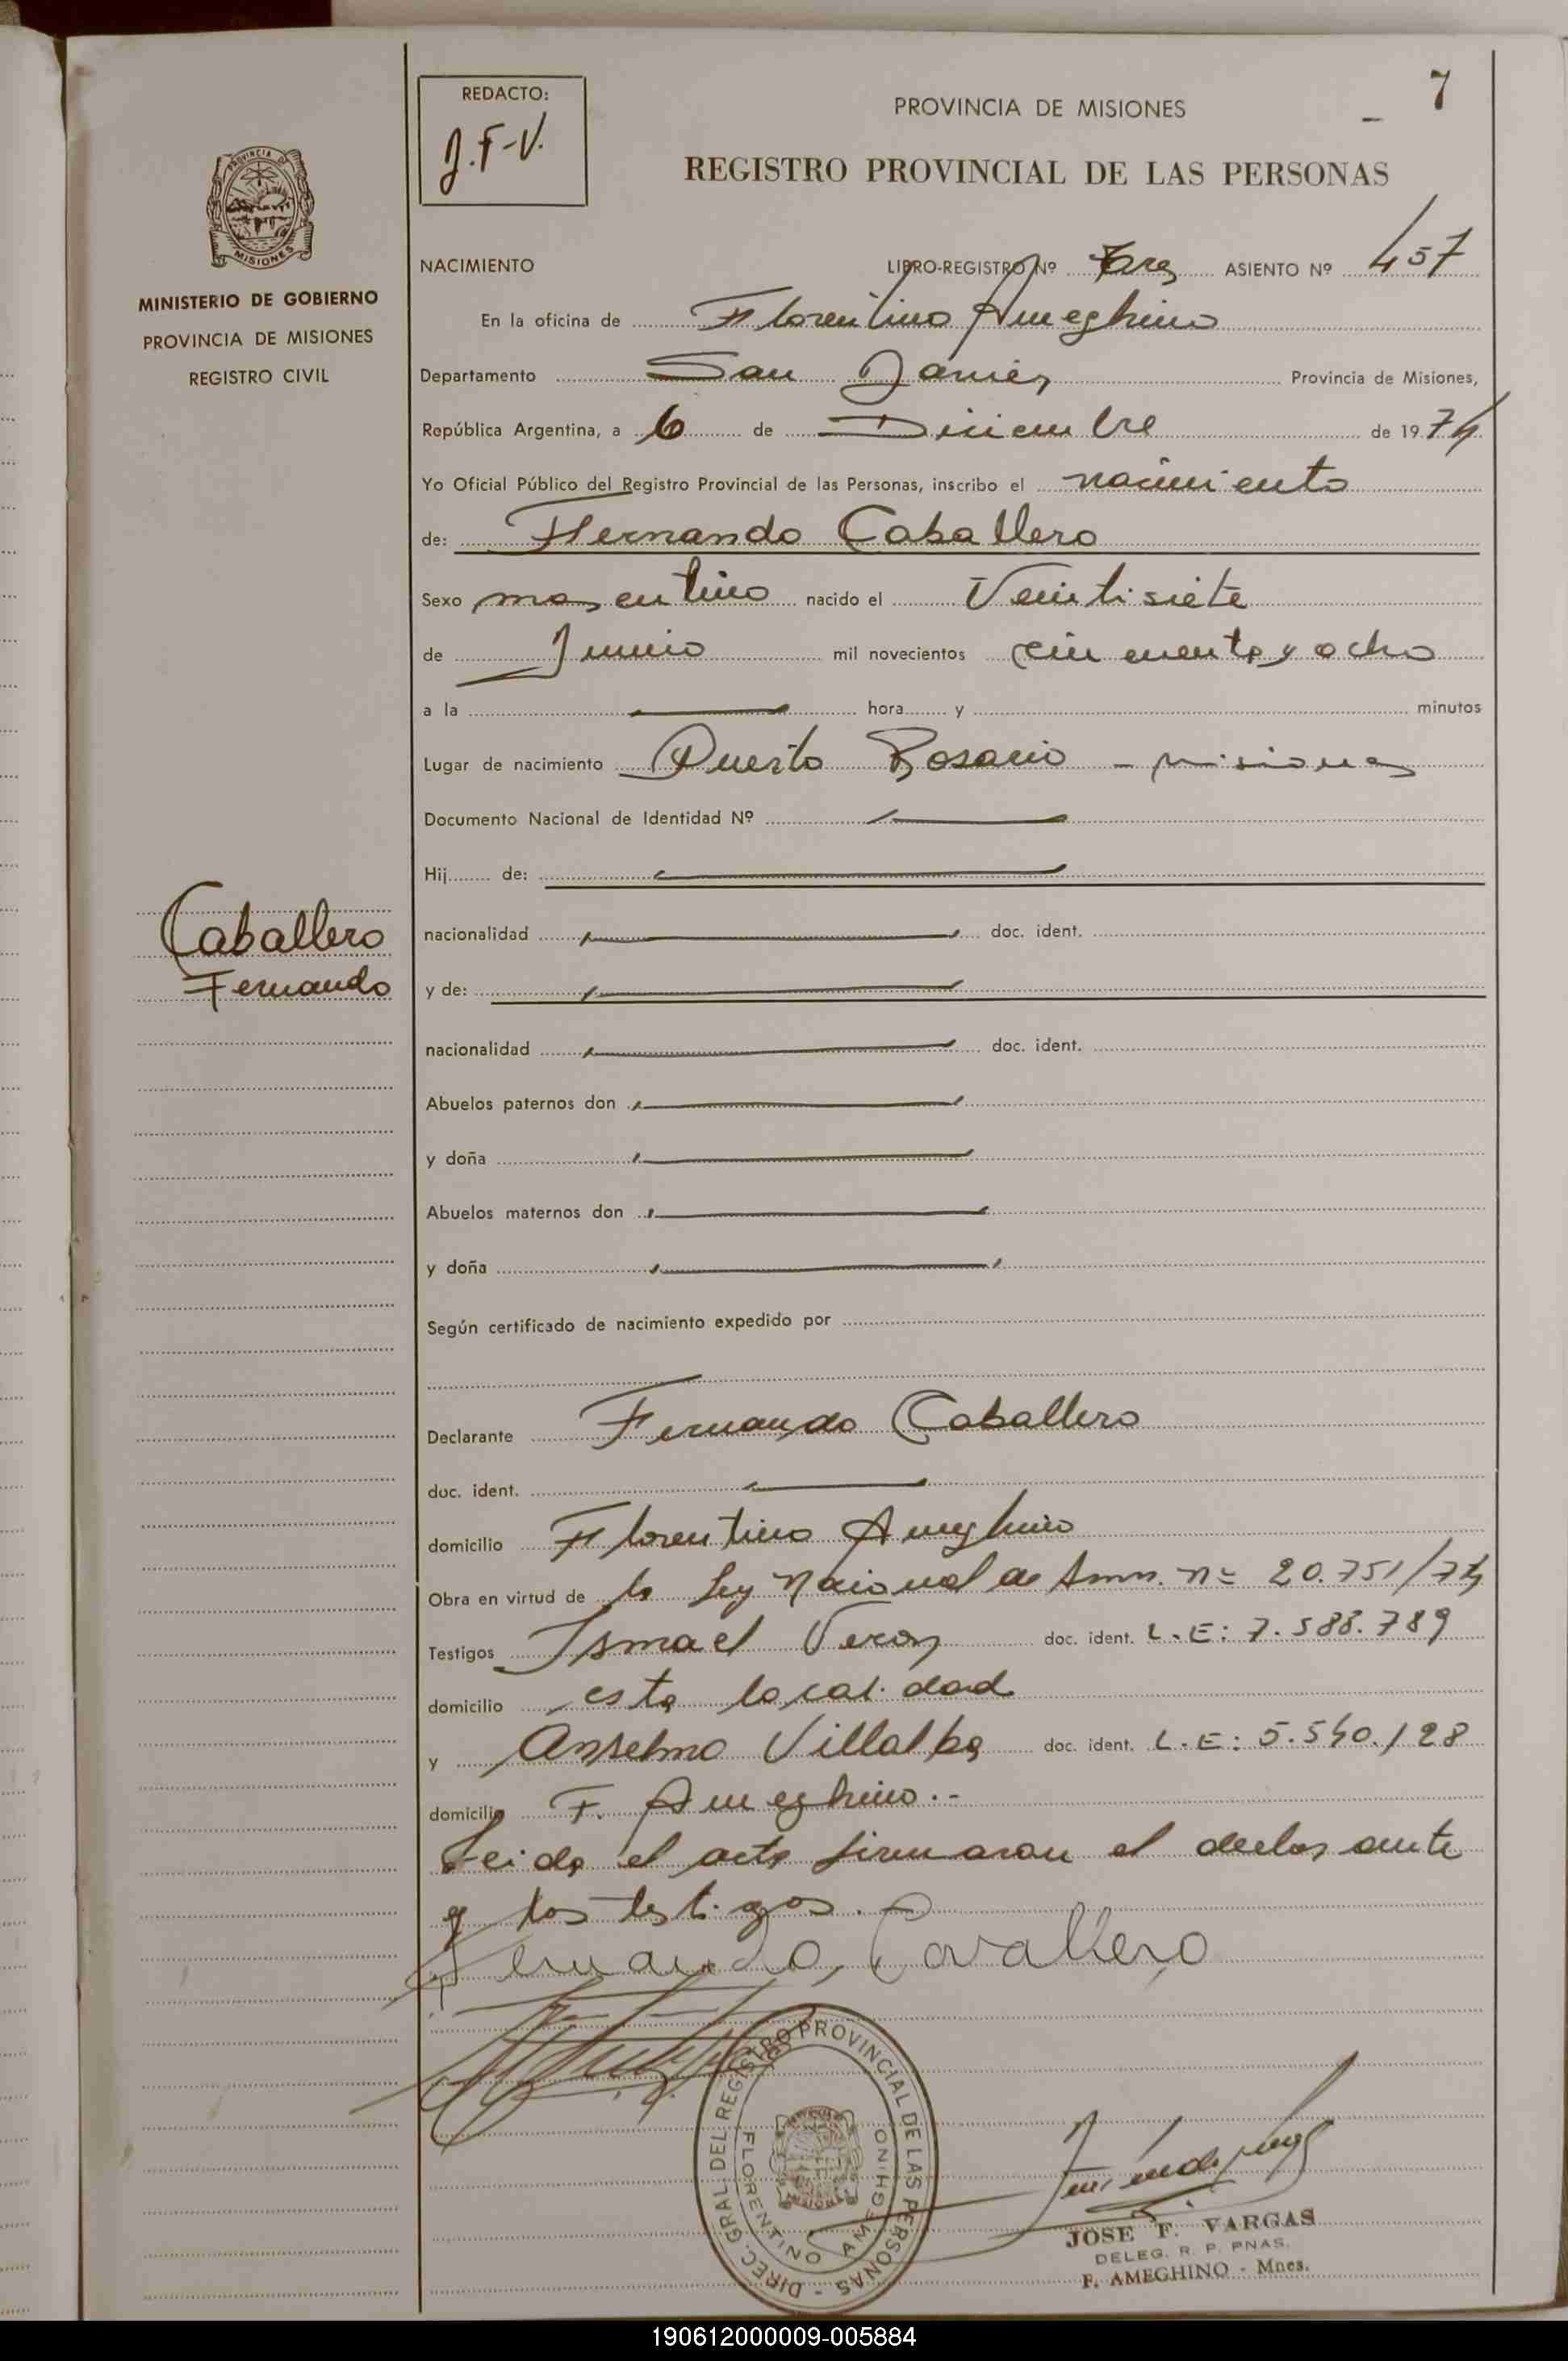 7
REDACTO:
J.F-V.
PROVINCIA DE MISIONES
REGISTRO PROVINCIAL DE LAS PERSONAS
PROVINCIA DE
MISIONES
MINISTERIO DE GOBIERNO
PROVINCIA DE MISIONES
REGISTRO CIVIL
NACIMIENTO LIBRO-REGISTRO Nº Tres ASIENTO Nº 457
En la oficina de Florentino Ameghino
Departamento San Javier Provincia de Misiones,
República Argentina, a 6 de Diciembre de 1974
Yo Oficial Público del Registro Provincial de las Personas, inscribo el nacimiento
de: Fernando Caballero
Sexo masculino nacido el Veintisiete
de Junio mil novecientos cincuenta y ocho
a la hora y minutos
Lugar de nacimiento Puerto Rosario - Misiones
Documento Nacional de Identidad Nº
Hij de:
Caballero
Fernando
nacionalidad doc. ident.
y de:
nacionalidad doc. ident.
Abuelos paternos don
y doña
Abuelos maternos don
y doña
Según certificado de nacimiento expedido por
Declarante Fernando Caballero
doc. ident.
domicilio Florentino Ameghino
Obra en virtud de la Ley Nacional de Amn. nº 20.751/74
Testigos Ismael Veron doc. ident. L.E: 7.588.789
domicilio esta localidad
y Anselmo Villalba doc. ident. L.E: 5.540.128
domicilio F. Ameghino.-
Leida el acta firmaron el declarante
y los testigos.-
Fernando Cavallero
DIREC. GRAL. DEL REGISTRO PROVINCIAL DE LAS PERSONAS -
FLORENTINO AMEGHINO
JOSE F. VARGAS
DELEG. R. P. PNAS.
F. AMEGHINO - Mnes.
190612000009-005884